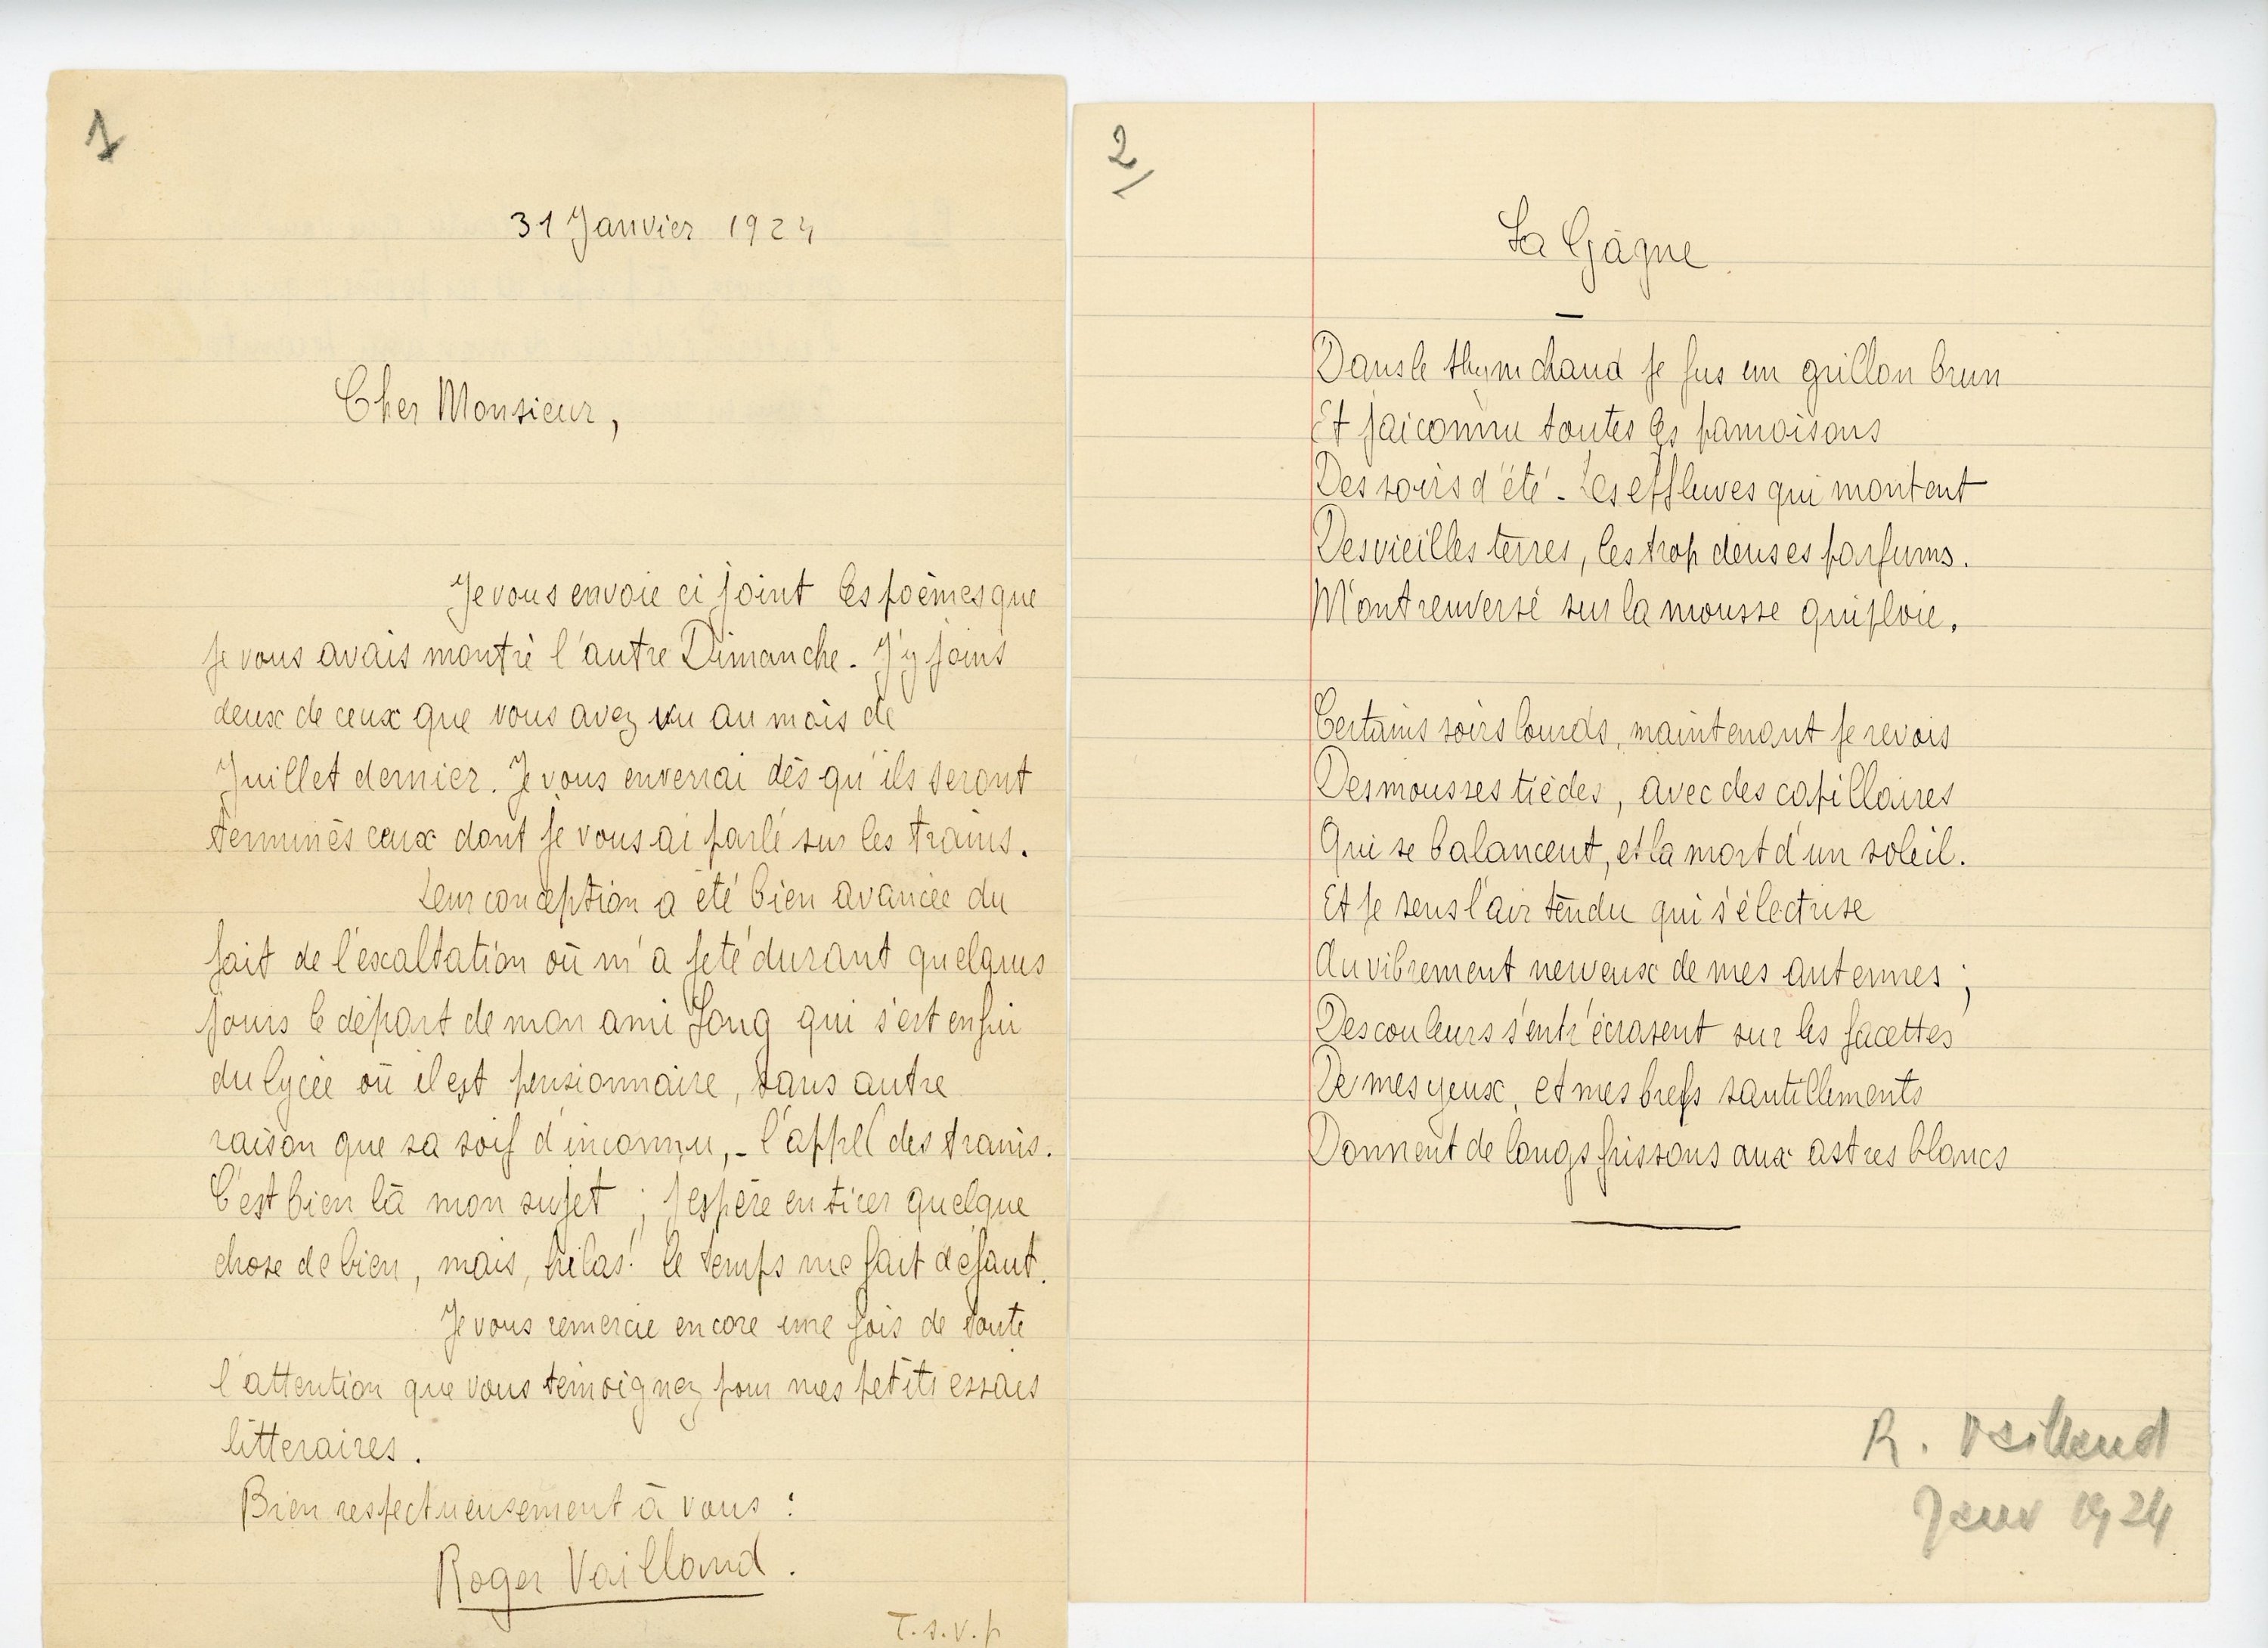 1
31 Janvier 1924
Cher Monsieur,
Je vous envoie ci joint les poèmes que
je vous avais montré l'autre Dimanche. J'y joins
deux de ceux que vous avez vu au mois de
Juillet dernier. Je vous enverrai dès qu'ils seront
terminés ceux dont je vous ai parlé sur les trains.
Leur conception a été bien avancée du
fait de l'exaltation où m'a jeté durant quelques
jours le départ de mon ami qui s'est enfui
du lycée où il est pensionnaire, sans autre
raison que sa soif d'inconnu, - l'appel des trains.
C'est bien là mon sujet ; j'espère en tirer quelque
chose de bien, mais, hélas! le temps me fait défaut.
Je vous remercie encore une fois de toute
l'attention que vous témoignez pour mes petits essais
litteraires.
Bien respectueusement à vous :
Roger Vailland.
T.s.v.p
2/
La Gâgne
Dans le thym chaud je fus un grillon brun
Et j'ai connu toutes les pamoisons
Des soirs d'été - Les effluves qui montent
Des vieilles terres, les trop denses parfums.
M'ont renversé sur la mousse qui ploie.
Certains soirs lourds, maintenant je revois
Des mousses tièdes, avec des capillaires
Qui se balancent, et la mort d'un soleil.
Et je sens l'air tendu qui s'électrise
Au vibrement nerveux de mes antennes ;
Des couleurs s'entr'écrasent sur les facettes
De mes yeux, et mes brefs sautillements
Donnent de longs frissons aux astres blancs
R. Vailland
Janv 1924